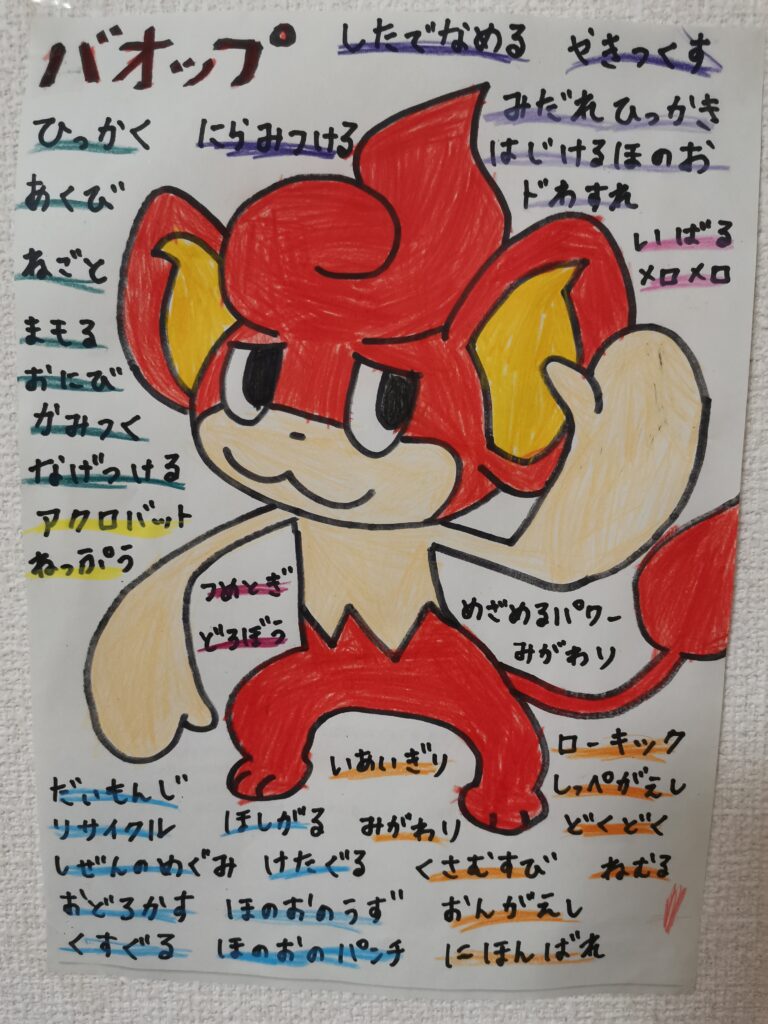 バオップ
したでなめる
やきつくす
ひっかく
にらみつける
みだれひっかき
はじけるほのお
ドわすれ
あくび
いばる
メロメロ
ねごと
まもる
おにび
かみつく
なげつける
アクロバット
ねっぷう
つめとぎ
どろぼう
めざめるパワー
みがわり
ローキック
いあいぎり
しっぺがえし
だいもんじ
リサイクル
ほしがる
みがわり
どくどく
しぜんのめぐみ
けたぐる
くさむすび
ねむる
おどろかす
ほのおのうず
おんがえし
くすぐる
ほのおのパンチ
にほんばれ